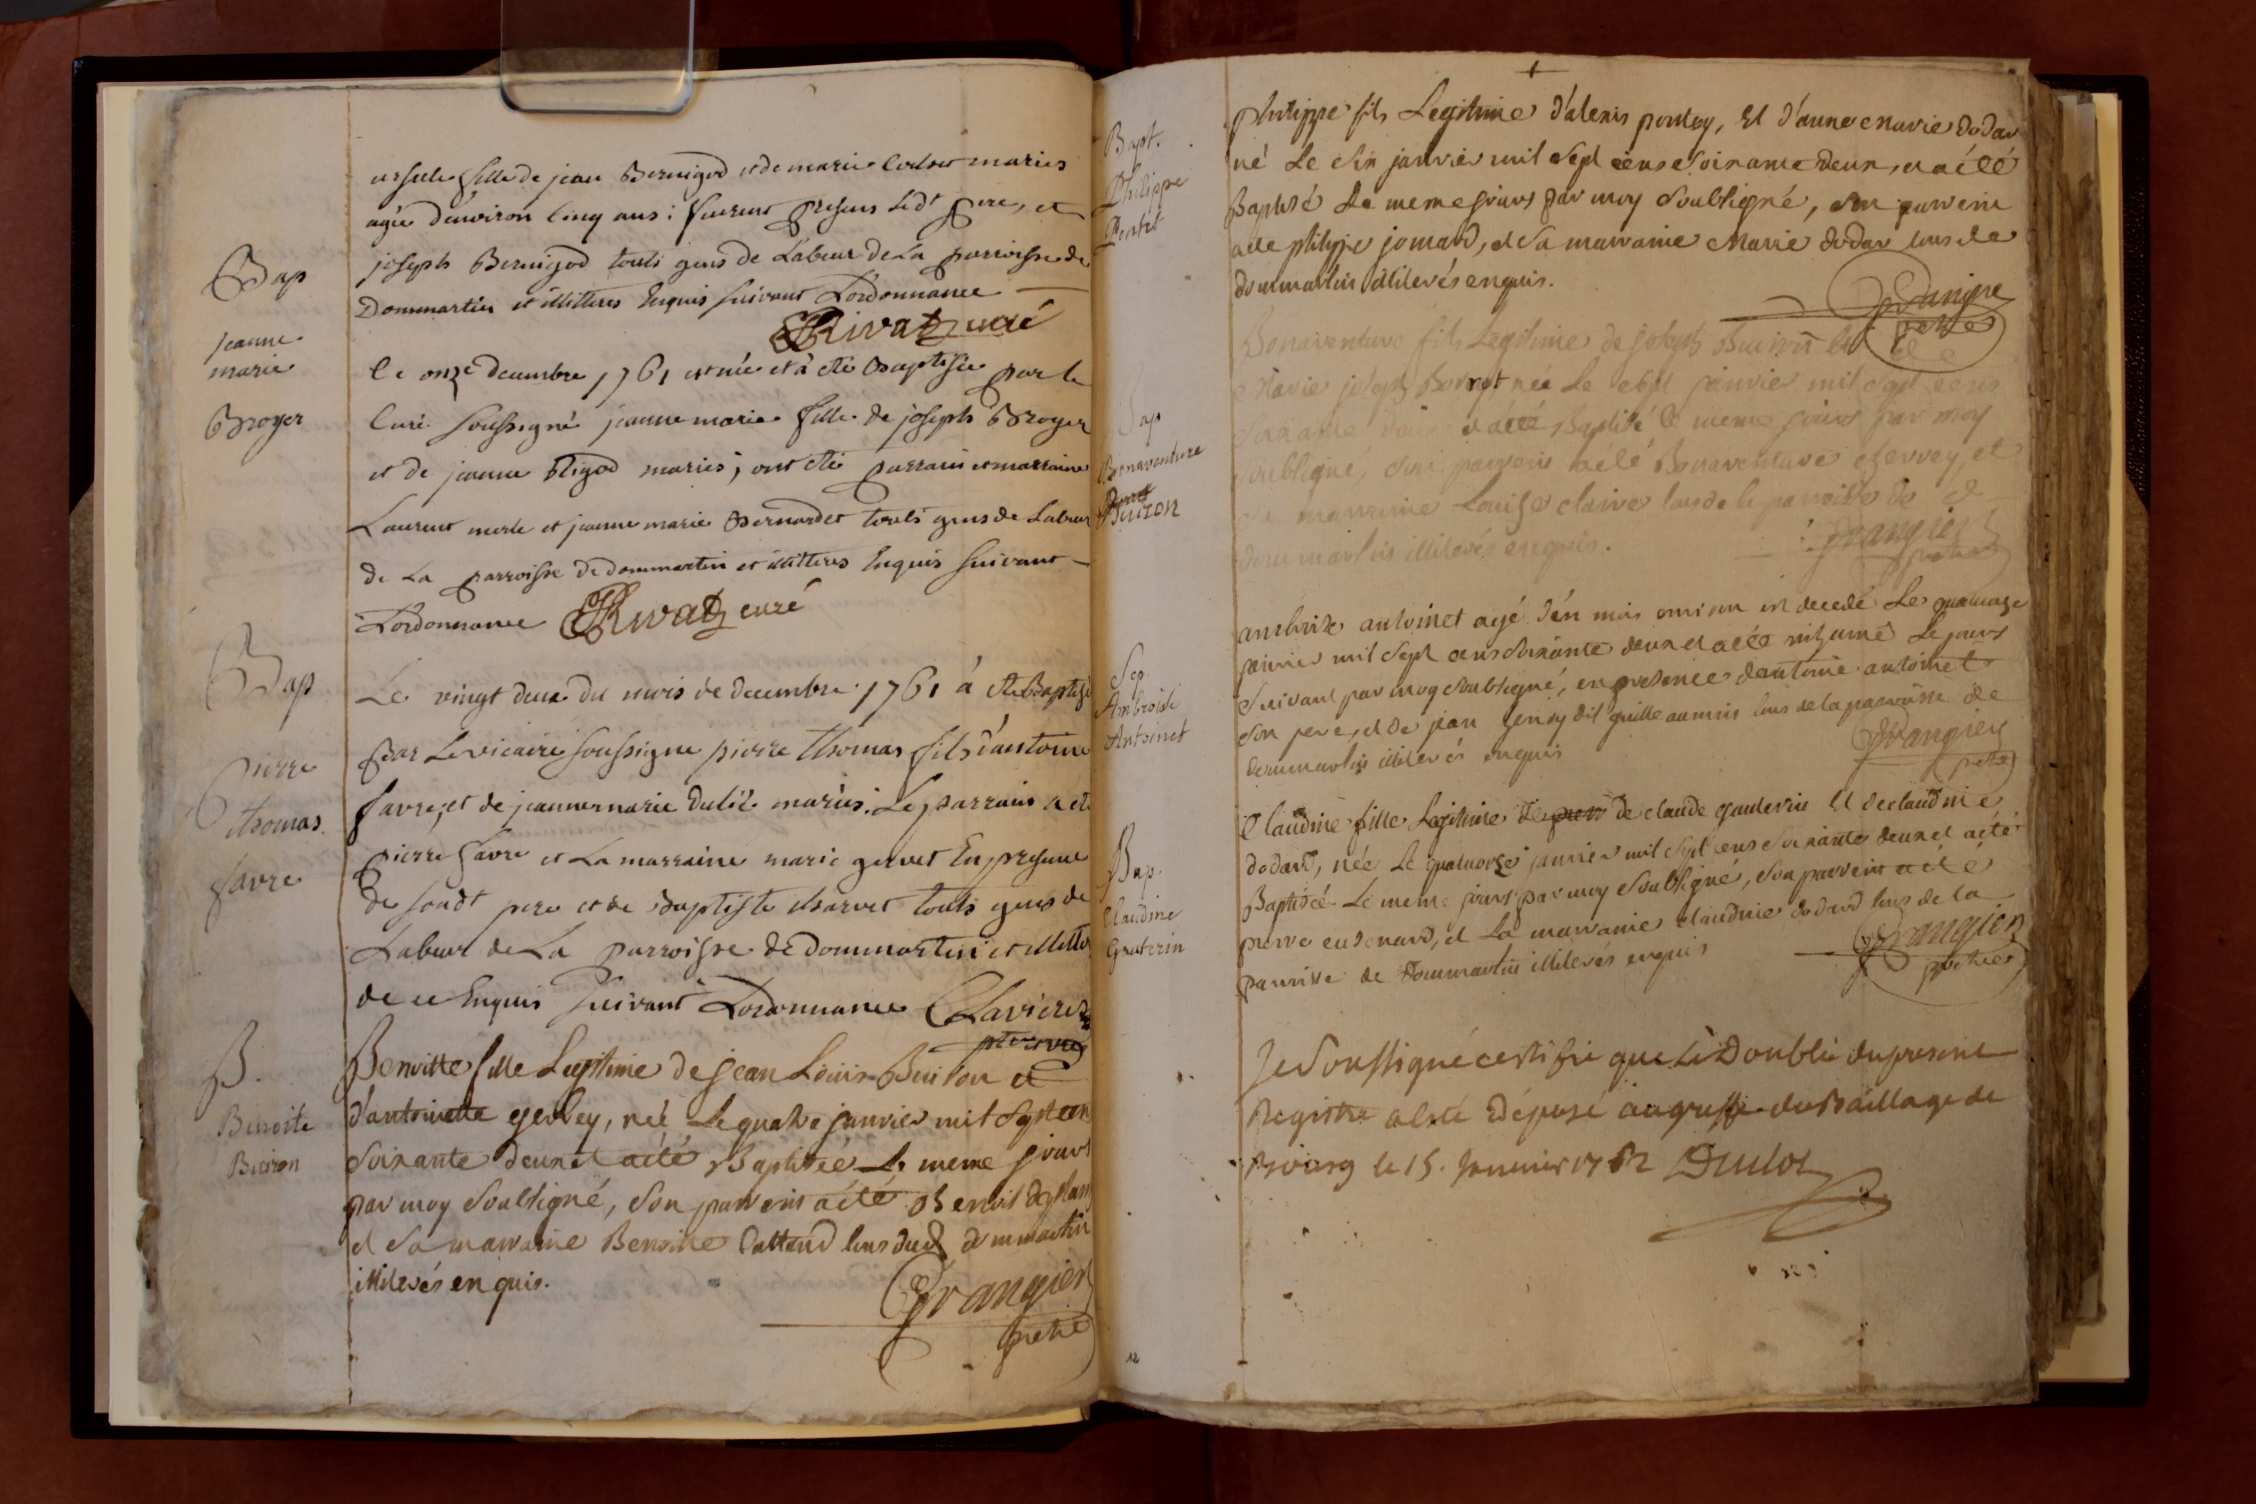 ursule fille de jean Bernigod et de marie mariés
agée d'environ cinq ans : furent presens led.t pere, et
joseph Bernigod touts gens de Labeur de La parroisse de
Dommartin et illitteres Enquis suivant L'ordonnance
Rivat curé
Bap
jeanne
marie
Broyer
le onze decembre 1761 est née et à eté Baptisée par le
Curé soussigné jeanne marie fille de joseph Broyer
et de jeanne mariés ; ont eté parrain et marraine
Laurent merle et jeanne marie Bernardet touts gens de Labeur
de La parroisse de dommartin et illitteres Enquis suivant
L'ordonnance Rivat curé
Bap
Pierre
thomas
favre
Le vingt deux du mois de decembre 1761 à eté Baptisé
Par Le vicaire soussigne pierre thomas fils d'antoine
favre, et de jeanne marie mariés : Le parrain a eté
pierre favre et La marraine marie gervet En presence
de sondt pere et de Baptiste touts gens de
Labeur de La parroisse de dommartin et
de ce Enquis suivant L'ordonnance
B.
Benoite
Buiron
Benoitte fille Legitime de jean Louis Buiron et
d'antoinette gervey, née Le quatre janvier mil sept cens
soixante deux et a eté Baptisée Le meme jours
par moy soubsigné, son parrein a eté Benoit
et sa marraine Benoitte tous dud dommartin
illiterés enquis.
Frangier
pretre
Bapt.
Philippe
philippe fils Legitime d'alexis et d'anne marie dodar
né Le six janvier mil sept cens soixante deux, et a eté
Baptisé Le meme jours par moy soubsigné, son parrein
a eté philippe jomard, et sa marraine Marie dodar tous de
dommartin illiterés enquis.
Frangier
pretre
Bap
Bonaventure
Buiron
Bonaventure fils Legitime de joseph Buiron et de
Marie joseph née Le janvier mil sept cens
soixante deux et a eté Baptisé Le meme jours par moy
soubsigné, son parrein a eté Bonaventure gervey, et
sa marraine Louise claire tous de la parroisse de
dommartin illiterés enquis.
Frangier
pretre
Sep
Ambroise
Antoinet
ambroise antoinet agé d'un mois environ est decedé Le quatorze
janvier mil sept cens soixante deux et a eté inhumé Le jours
suivant par moy soubsigné, en presence d'antoine antoinet
son pere, et de jean dit tous de la parroisse de
dommartin illiterés enquis
Frangier
pretre
Bap.
Claudine
Graterin
Claudine fille Legitime de claude et de claudine
dodard, née Le quatorze janvier mil sept cens soixante deux et a eté
Baptisée Le meme jours par moy soubsigné, son parrein a eté
pierre et La marraine claudine dodard tous de la
parroisse de Dommartin illiterés enquis
Frangier
pretre
Je soussigné certifie que Le Double du present
Registre a eté déposé au greffe du Baillage de
Bourg le 15. janvier 1762
12